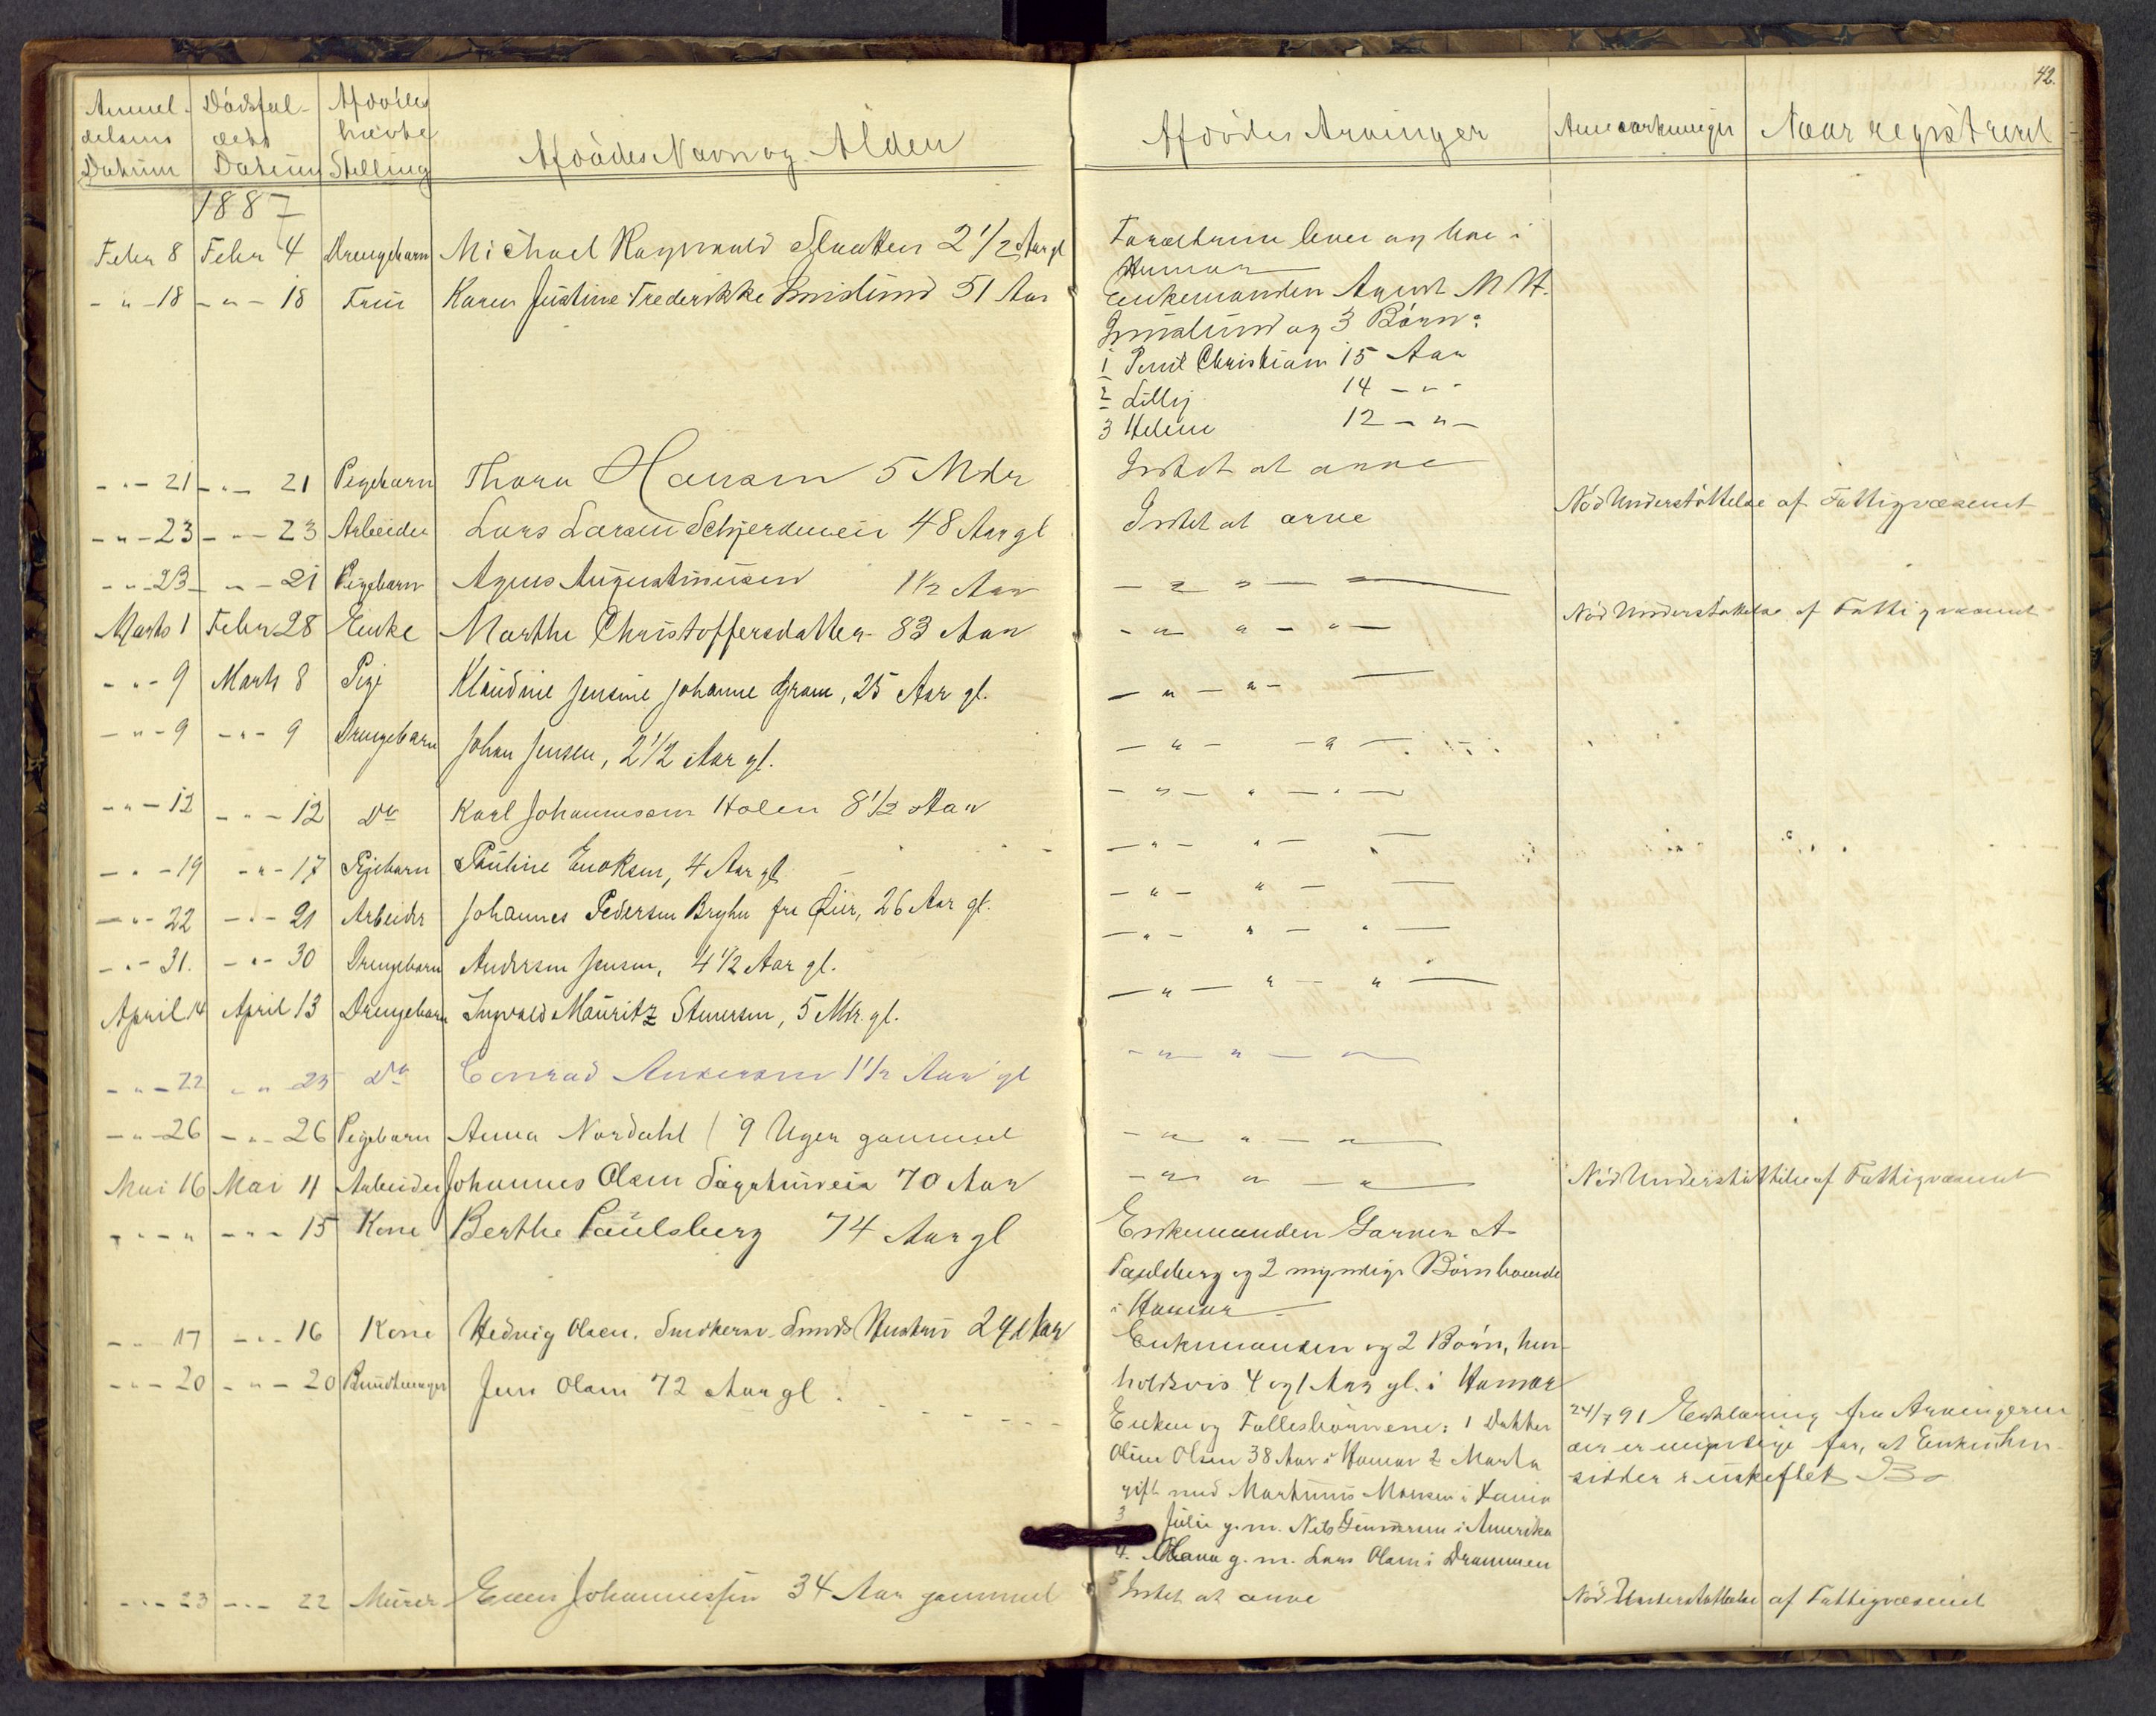 42.
Anmel- Dødsfal- Afdødes
delsens dets havte
Datum Datum Stilling Afdødes Navn og Alder Afdødes Arvinger Anmærkninger Naar registreret
1887
Febr 8 Febr 4 Drengebarn Michael Ragnvald Slaatten 2 1/2 Aar gl Forældrene lever og bor i
Hamar
- " - 18 - " - 18 Frue Karen Justine Frederikke 51 Aar Enkemanden Agent M H.
og 3 Børn:
1 Christian 15 Aar
2 Lilly 14 - " -
3 Helene 12 - " -
- " - 21 - " - 21 Pigebarn Thora Hansen 5 Mdr Intet at arve
- " - 23 - " - 23 Arbeider Lars Larsen Schjerdenveir 48 Aar gl Intet at arve Nød Understøttelse af Fattigvæsenet
- " - 23 - " - 21 Pigebarn Agnes Augustinusen 1 1/2 Aar - " " -
Marts 1 Febr 28 Enke Marthe Christoffersdatter 83 Aar - " " - " - Nød Understøttelse af Fattigvæsenet
- " - 9 Marts 8 Pige Klaudine Jensine Johanne Gram, 25 Aar gl. - " - " -
- " - 9 - " - 9 Drengebarn Johan Jensen, 2 1/2 Aar gl. - " - - " -
- " - 12 - " - 12 Do Karl Johannesen Holen 8 1/2 Aar - " - " - " -
- " - 19 - " - 17 Pigebarn Pauline Enoksen, 4 Aar gl - " - " -
- " - 22 - " - 21 Arbeider Johannes Pedersen Bryhn fra Øier, 26 Aar gl. - " - " -
- " - 31. - " - 30 Drengebarn Andersen Jensen, 4 1/2 Aar gl. - " - " - " -
April 14 April 13 Drengebarn Ingvald Mauritz Stenersen, 5 Mdr. gl. - " - " - " -
- " - 22 - " - 23 Do Conrad Andersen 1 1/2 Aar gl - " " - "
- " - 26 - " - 26 Pigebarn Anna Nordahl / 9 Uger gammel - " " - "
Mai 16 Mai 11 Arbeider Johannes Olsen 70 Aar - " " - " Nød Understøttelse af Fattigvæsenet
- " - " - " - 15 Kone Berthe Paulsberg 74 Aar gl Enkemanden Garver A
Paulsberg og 2 myndige Børn boende
i Hamar
- " 17 - " - 16 Kone Hedvig Olsen. Snedkersv. Lunds Hustru 29 Aar Enkemanden og 2 Børn, hen-
holdsvis 4 og 1 Aar gl. i Hamar
- " - 20 - " - 20 Jens Olsen 72 Aar gl. Enken og Fællesbørnene: 1 Datter 24/7 91 Erklæring fra Arvingerne
Oline Olsen 38 Aar i Hamar 2 Marta der er myndige for, at Enken hen-
gift med Martinus Monsen i sidder i uskiftet Bo
3 Julie g.m. Nils Gunnersen i Amerika
4. g.m. Lars Olsen i Drammen
- " - 23 - " - 22 Murer Johannessen 34 Aar gammel 5 Intet at arve Nød Understøttelse af Fattigvæsenet